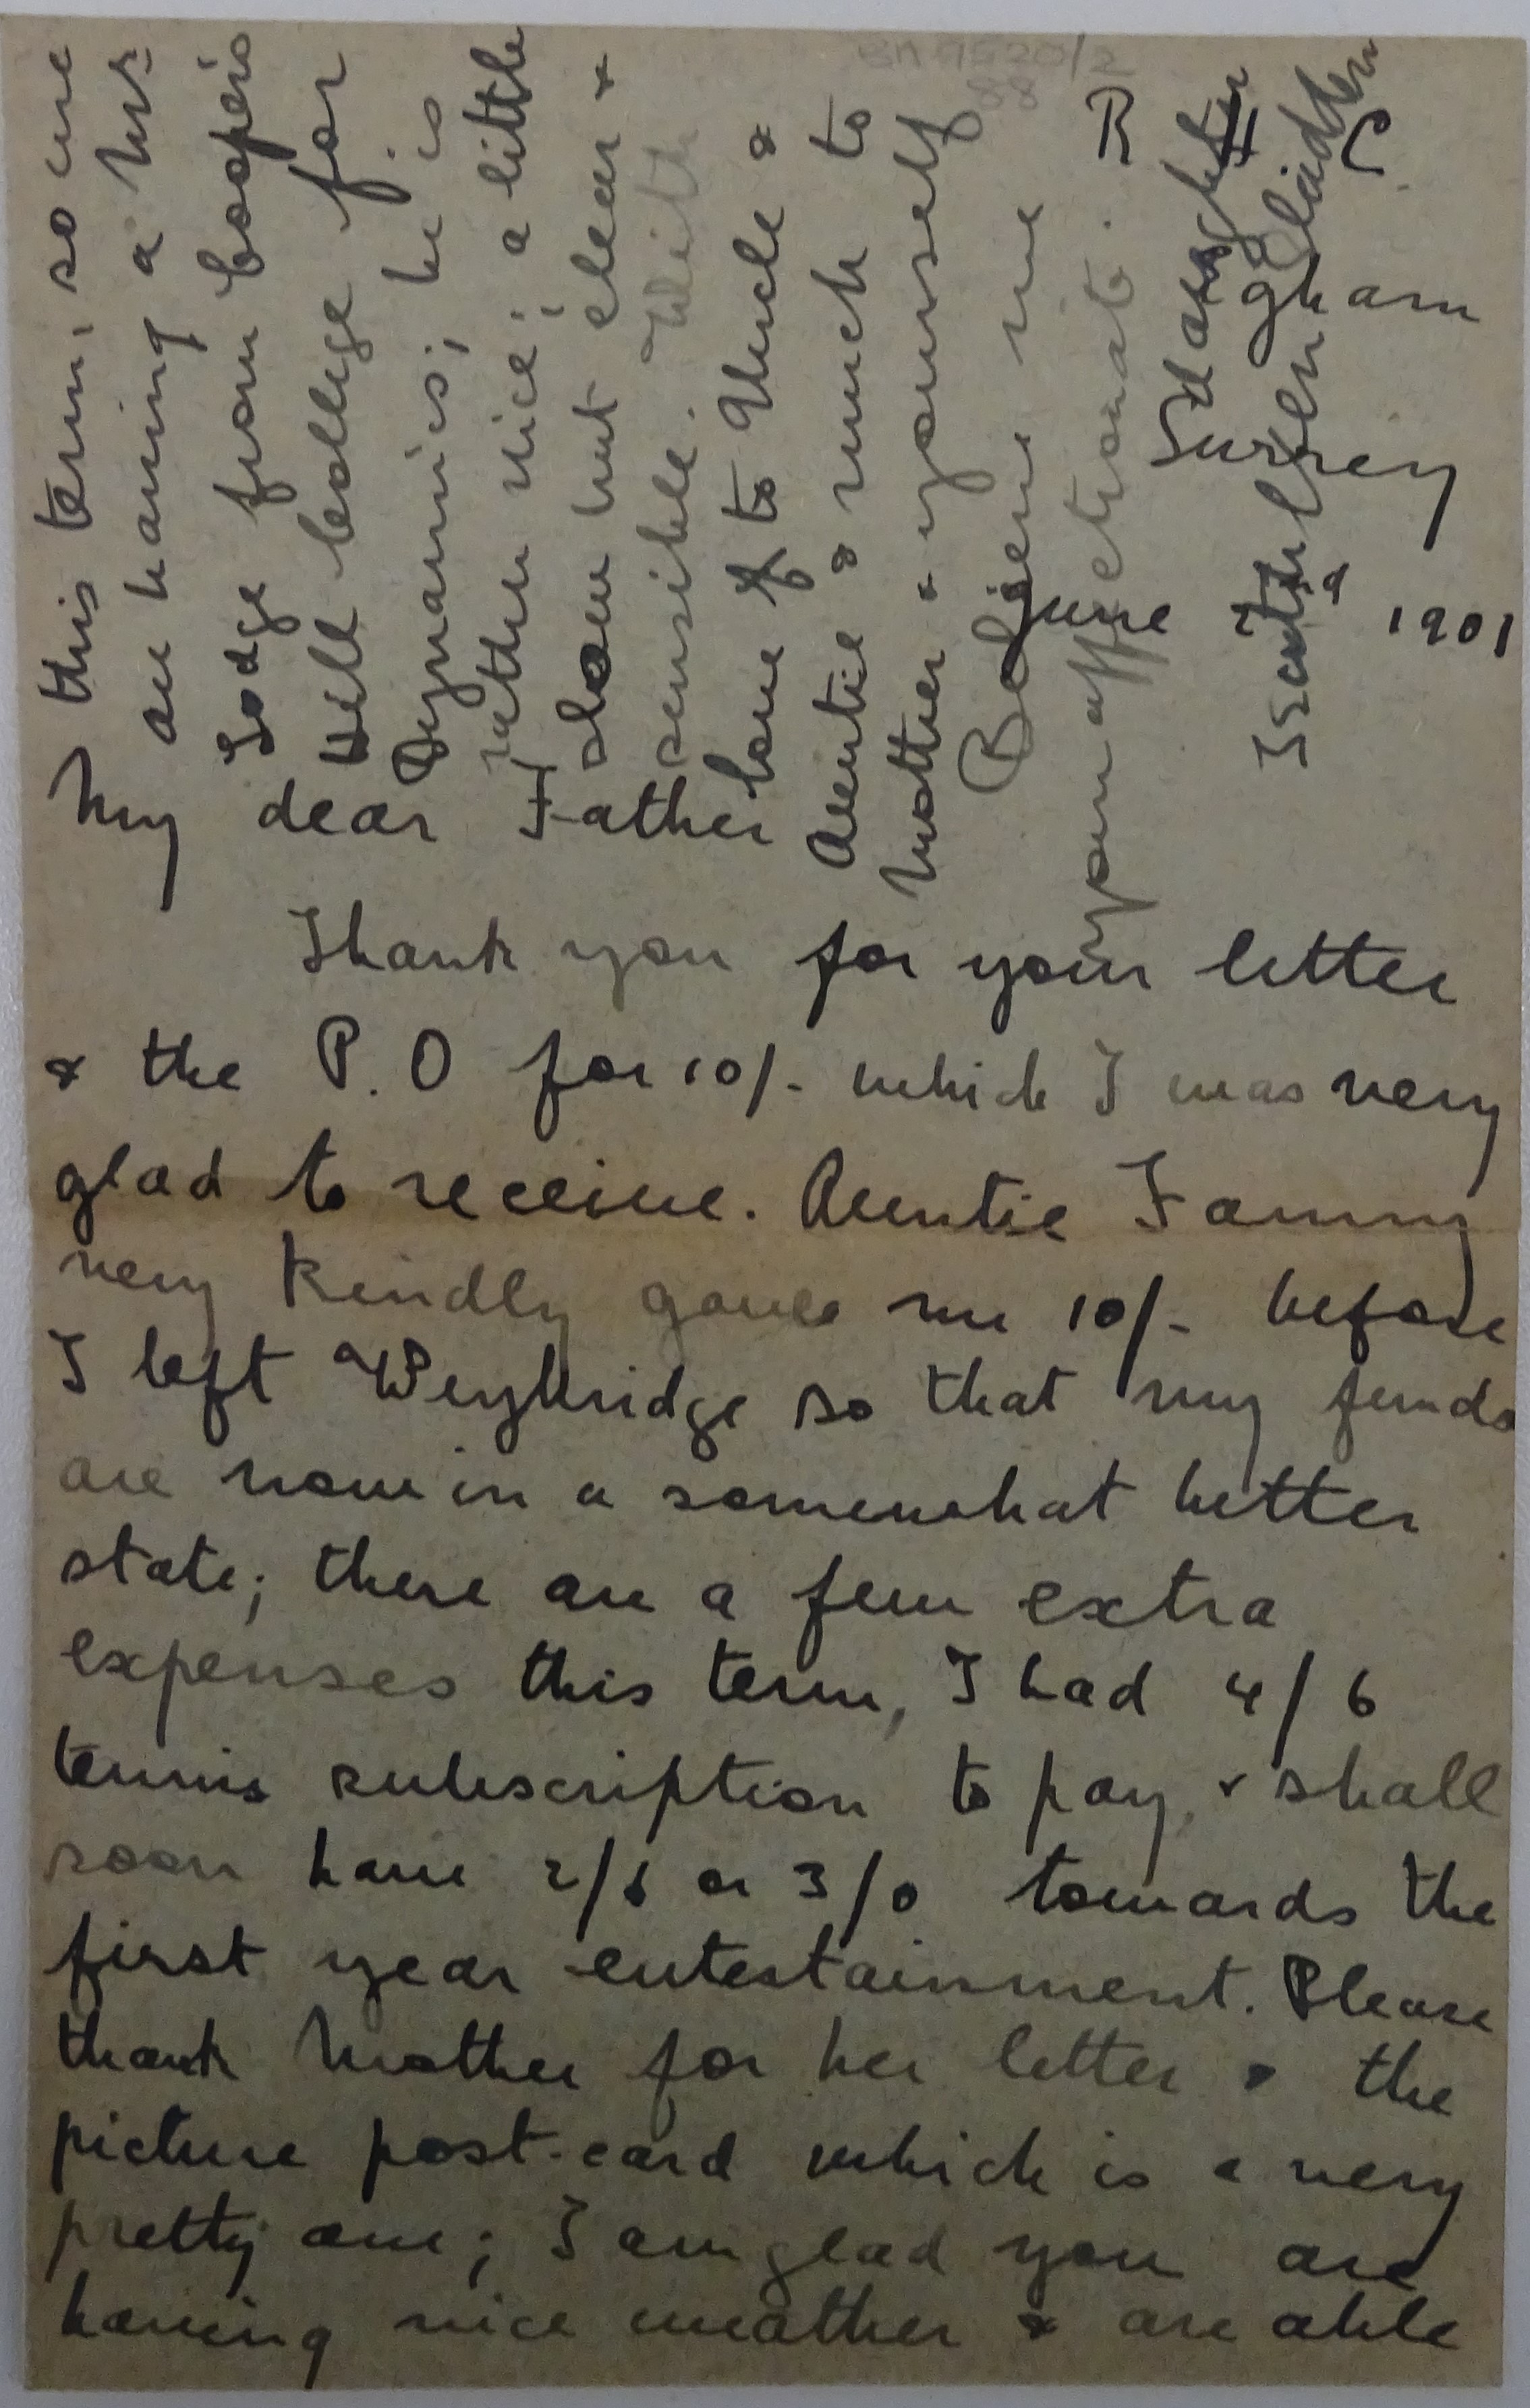 R H C
Egham
Surrey
June 1901
My dear Father
Thank you for your letter
& the P. O for 10/- which I was very
glad to receive. Auntie Fanny
very kindly gave me 10/- before
I left Weybridge so that my funds
are now in a somewhat better
state; there are a few extra
expenses this term, I had 4/6
tennis subscription to pay, & shall
soon have 2/6 or 3/0 towards the
first year entertainment. Please
thank Mother for her letter & the
picture post-card which is a very
pretty one; I am glad you are
having nice weather & are able
this term, so we
are having a Mr
Lodge from Cooper's
Hill College for
Dynamics; he is
rather nice; a little
slow but clear &
sensible. With
love to Uncle &
Auntie & much to
Mother & yourself
Believe me
your affectionate
daughter